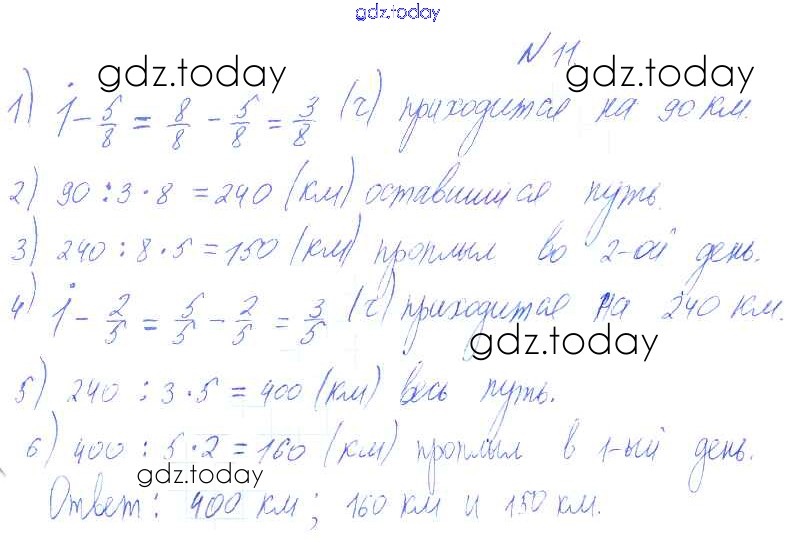 gdz.today
N 11
gdz.today
1) 1 - 5/8 = 8/8 - 5/8 = 3/8 (ч) приходится на 90 км.
2) 90 : 3 · 8 = 240 (км) оставшийся путь.
3) 240 : 8 · 5 = 150 (км) проплыл во 2-ой день.
4) 1 - 2/5 = 5/5 - 2/5 = 3/5 (ч) приходится на 240 км.
gdz.today
5) 240 : 3 · 5 = 400 (км) весь путь.
6) 400 : 5 · 2 = 160 (км) проплыл в 1-ый день.
gdz.today
Ответ: 400 км; 160 км и 150 км.